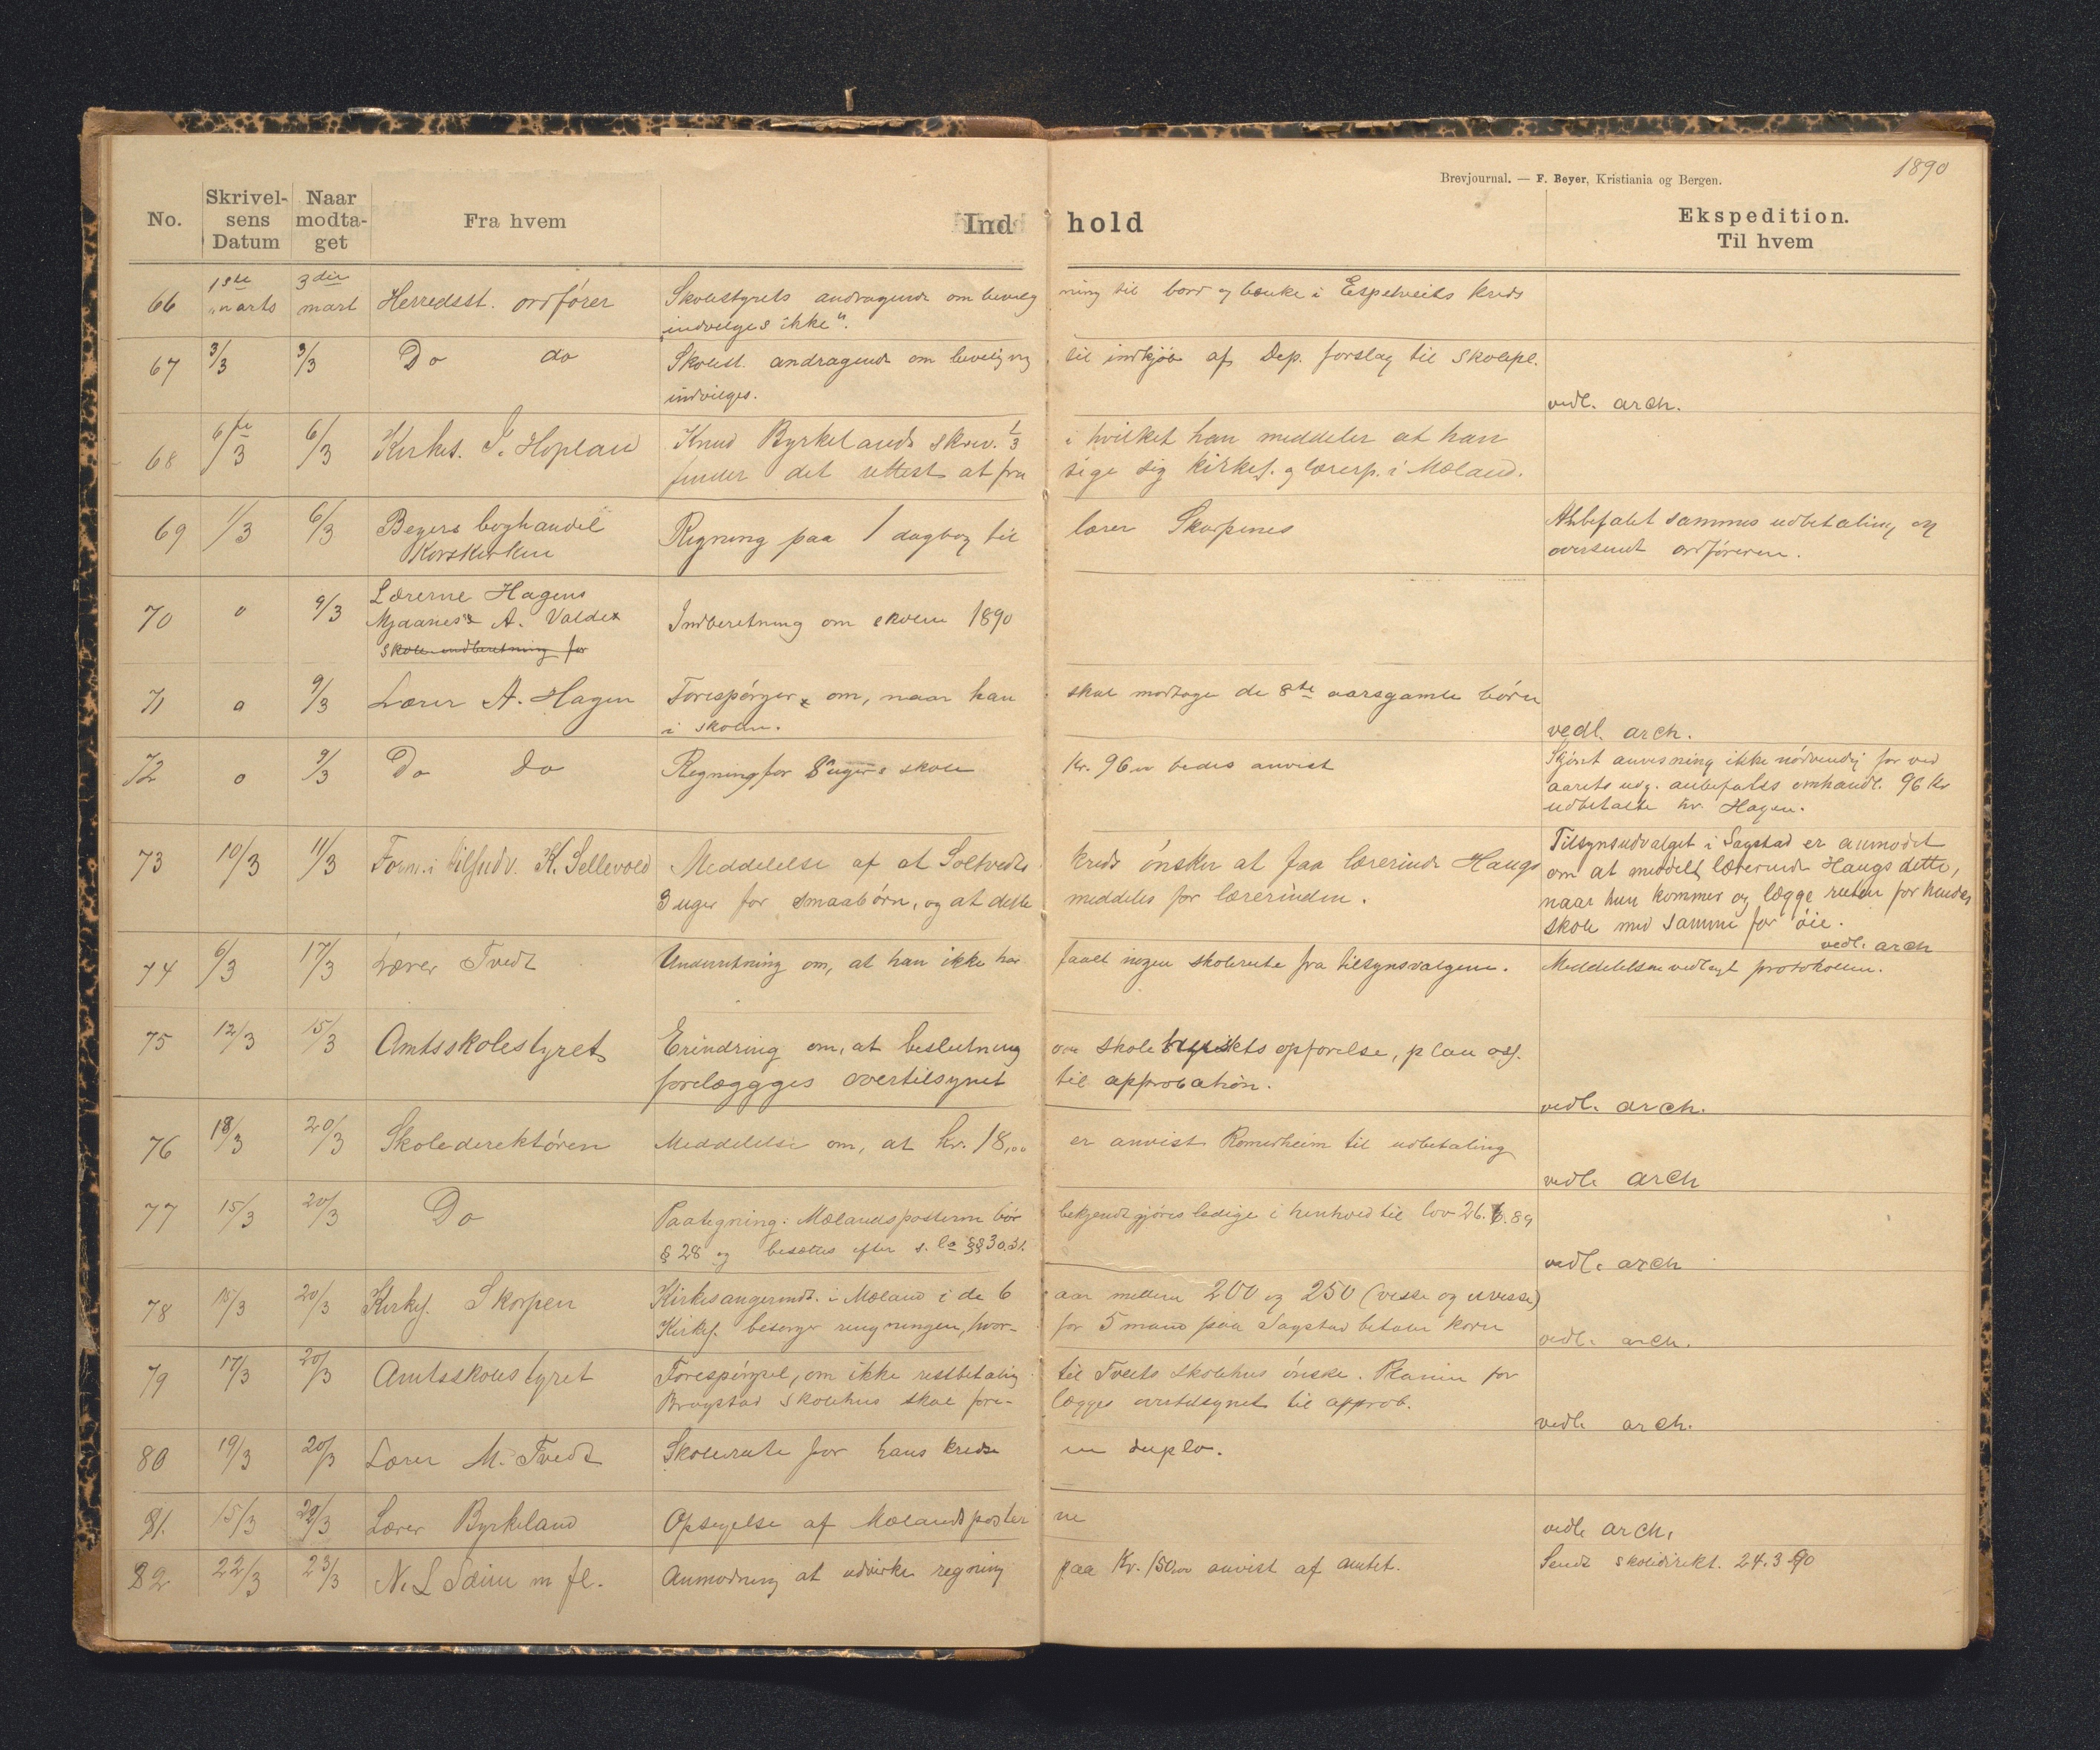 1890
Brevjournal. — F. Beyer, Kristiania og Bergen.
No. Skrivelsens Datum Naar modtaget Fra hvem Indhold Ekspedition. Til hvem
66 1ste marts 3die mart Herredsst. ordfører Skolestyrets andragende om bevilg ning til bord og benke i Espetveits kreds
indvilges ikke".
67 3/3 3/3 Do do Skolest. andragende om bevilgning til indkjøb af Dep. forslag til Skolepl.
indvilges. vedl. arch.
68 6/3 6/3 Kirkes. Hoplan Knud Byrkelands skriv. 1/3 i hvilket han meddeler at han
finder det rettest at fra sige sig kirkes. og lærerp. i Mæland.
69 1/3 6/3 Beyers boghandel Korskirken Regning paa 1 dagbog til lærer Skarpenes Anbefalet sammes udbetaling og
oversendt ordføreren.
70 0 9/3 Lærerne Hagens
Mjaanes & A. Valde Indberetning om skolen 1890
skole indberetning for
71 0 9/3 Lærer A. Hagen Forespørger om, naar han skal modtage de 8te aarsgamle børn
i skolen. vedl. arch.
72 0 9/3 Do do Regning for 8 ugers skole Kr. 96 bedes anvist Skjønt anvisning ikke nødvendig før ved
aarets udg. anbefales omhandl. 96 Kr
udbetalte hr. Hagen.
73 10/3 11/3 Form. i tilsudv. K. Sellevold Meddelelse af at Soltvedts kreds ønsker at faa lærerinde Haugs Tilsynsudvalget i Sagstad er anmodet
om at meddele lærerinde Haugs dette,
3 uger for smaabørn, og at dette meddeles før lærerinden. naar hun kommer og lægge ruten for hendes
skole med samme for øie.
vedl. arch
74 6/3 17/3 Lærer Tvedt Underretning om, at han ikke har faaet nogen skolerute fra tilsynsvalgene. Meddelelsen vedlagt protokollen.
75 12/3 15/3 Amtsskolestyret Erindring om, at beslutning om skole opførelse, plan osf.
forelæggges overtilsynet til approbation.
vedl. arch.
76 18/3 20/3 Skoledirektøren Meddelelse om, at kr. 18,00 er anvist Romerheim til udbetaling
vedl. arch
77 15/3 20/3 Do Paategning: Mælandsposterne bør bekjendtgjøres ledige i henhold til lov 26.6.89
§ 28 og besættes efter s. lo §§ 30.31.
vedl. arch
78 15/3 20/3 Kirkes. Skorpen Kirkesangerindt. i Mæland i de 6 aar mellem 200 og 250 (visse og uvisse)
Kirkes. besørger ringningen, hvor- for 5 mand paa Sagstad betaler korn
vedl. arch.
79 17/3 20/3 Amtsskolestyret Forespørgsel, om ikke restbetaling til Tveits skolehus ønske. Planen for
Brogstad skolehus skal fore- lægges overtilsynet til approb.
vedl. arch.
80 19/3 20/3 Lærer M. Tvedt Skolerute for hans kredse in duplo.
81. 15/3 20/3 Lærer Byrkeland Opsigelse af Mælandsposter ne
vedl. arch.
82 22/3 23/3 N. L Sæim m fl. Anmodning at udvirke regning paa Kr. 150,00 anvist af amtet. Sendt skoledirekt. 24.3.90